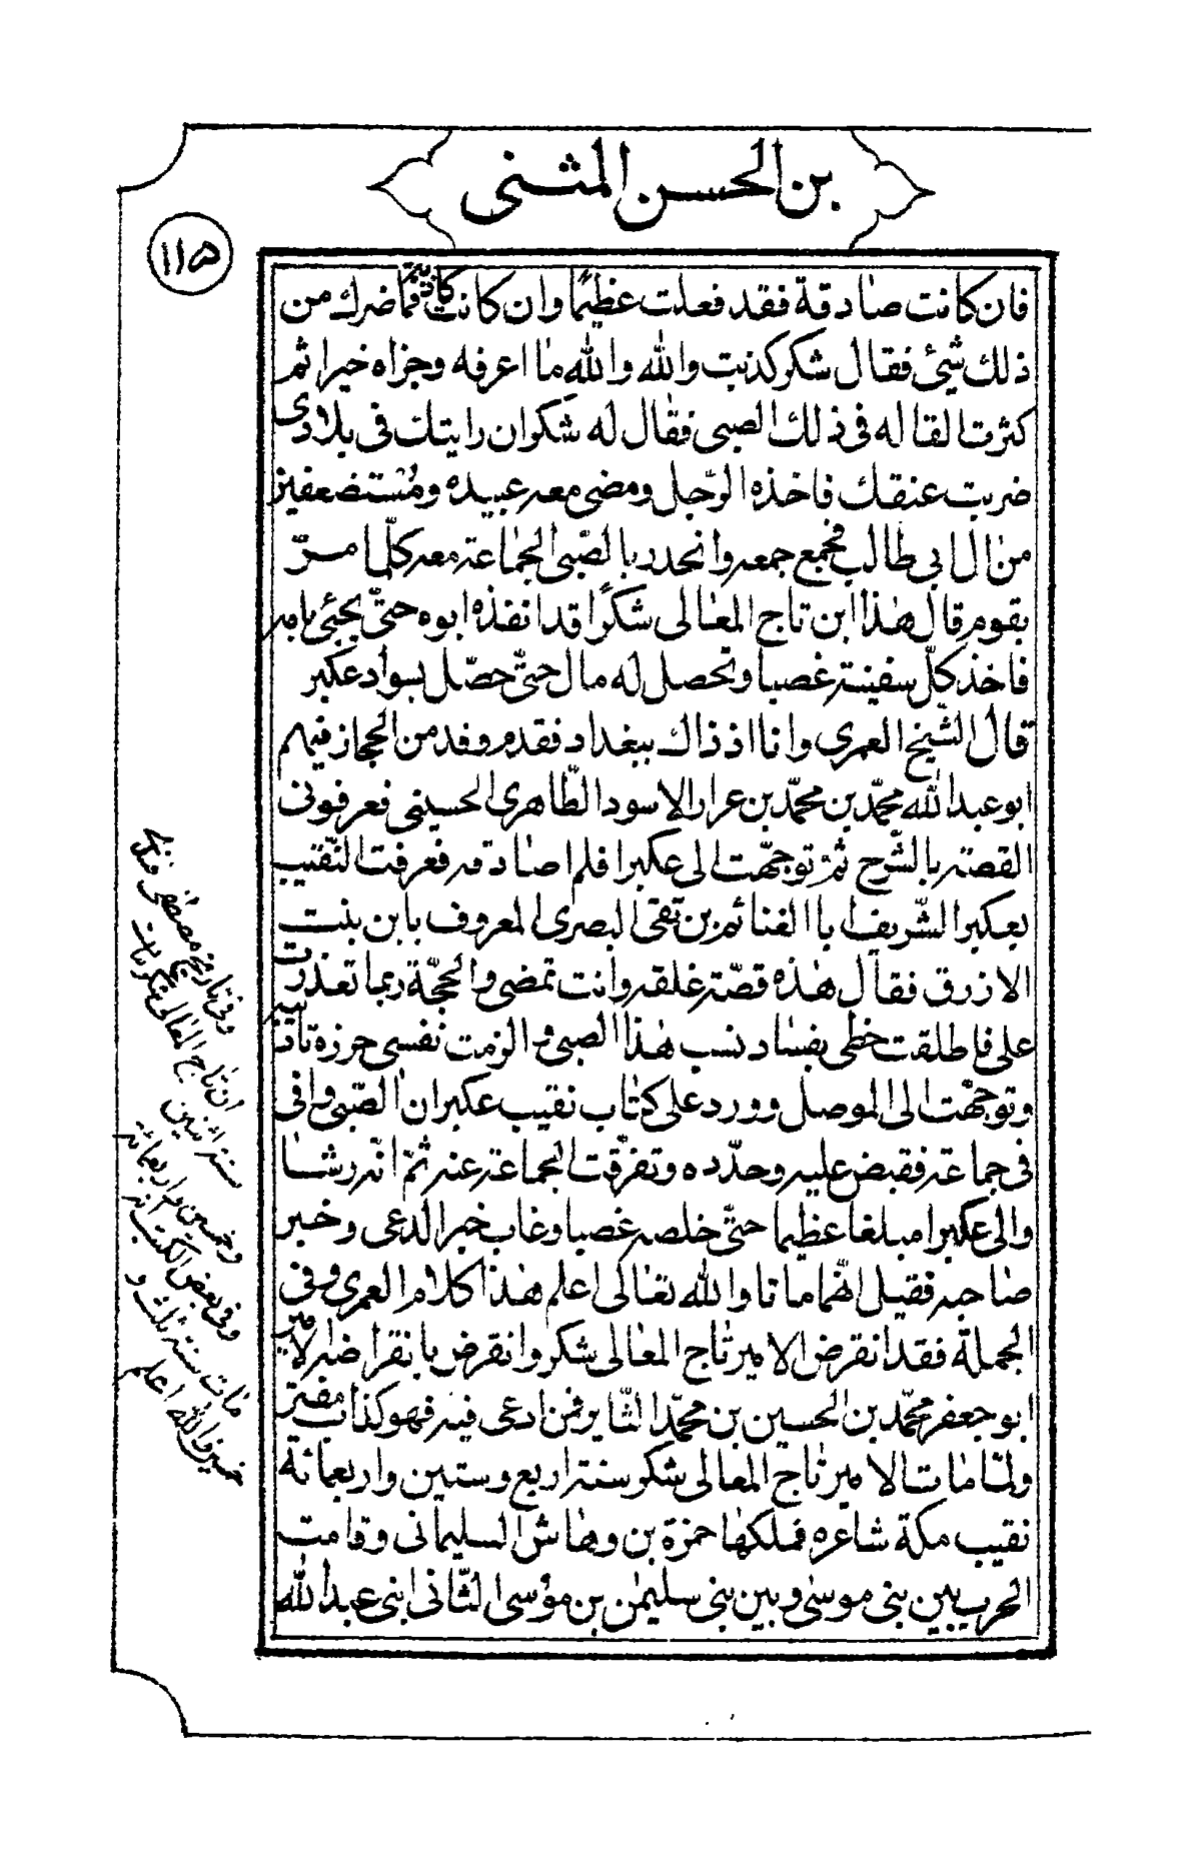 بن الحسن المثنى
١١٥
فان كانت صادقة فقد فعلت عظيما وان كانت كاذبة فما ضرك من
ذلك شيئ فقال شكر كذبت والله والله ما اعرفه وجزاه خيرا ثم
كثرت القاله في ذلك الصبى فقال له شكر ان رايتك فى بلادى
ضربت عنقك فاخذه الرّجل ومضى معه عبيده ومستضعفين
من ال ابي طالب فجمع جمعه وانحدر بالصّبى الجماعة معه كلّما مرّ
بقوم قال هذا ابن تاج المعالى شكرًا قد انفذه ابوه حتّى يجيئ بامه
فاخذ كلّ سفينة غصبا وتحصل له مال حتّى حصّل بسواد عكبر
قال الشّيخ العمرى وانا اذ ذاك ببغداد فقدم وفد من الحجاز فيهم
ابو عبدالله محمّد بن محمّد بن عرار الاسود الطّاهرى الحسينى فعرفونى
القصّه بالشّرح ثم توجّهت الى عكبرا فلم اصادفه فعرفت النّقيب
بعكبر الشّريف ابا الغنائم بن تقى البصرى المعروف بابن بنت
الازرق فقال هذه قصّة غلقه وانت تمضى والحجّة ربما تعذرت
على فاطلقت خطى بفساد نسب هذا الصبى والزمت نفسى حرزة
وتوجّهت الى الموصل وورد على كتاب نقيب عكبر ان الصّبى وافى
فى جماعة فقبض عليه وحدّده وتفرّقت الجماعة عنه ثمّ انّه رشا
والى عكبرا مبلغا عظيما حتّى خلصه غصبا وغاب خبر الدعى وخبر
صاحبه فقيل انّهما ماتا والله تعالى اعلم هذا كلام العمرى وفى
الجملة فقد انقرض الامير تاج المعالى شكر وانقرض بانقراضه الامير
ابو جعفر محمّد بن الحسين بن محمّد الثّاير فمن ادعى فيه فهو كذاب مفتر
ولمّا مات الامير تاج المعالى شكر سنة اربع وستين واربعمائة
نقيب مكة شاغره فملكها حمزة بن وهاش السليمانى وقامت
الحرب بين بنى موسى وبين بنى سليمن بن مؤسى الثّانى ابنى عبدالله
وفى تاريخ مصطفى
ان تاج المعالى شكر مات
سنه اثنين
وخمسين واربعمائه
وفى بعض الكتب انه
مات سنه ثلث و
خمسين والله اعلم